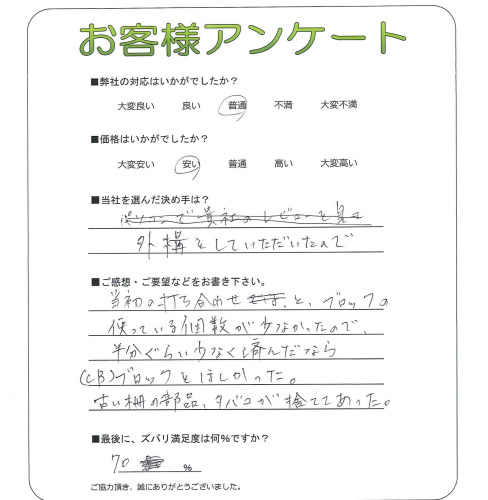 お客様アンケート
■弊社の対応はいかがでしたか?
大変良い 良い 普通 不満 大変不満
■価格はいかがでしたか?
大変安い 安い 普通 高い 大変高い
■当社を選んだ決め手は?
パソコンで貴社のレビューを見て
外構をしていただいたので
■ご感想・ご要望などをお書き下さい。
当初の打ち合わせ と、ブロックの
使っている個数が少なかったので、
半分ぐらい少なく済んだなら
(CB)ブロックとほしかった。
古い柵の部品、タバコが捨ててあった。
■最後に、ズバリ満足度は何%ですか?
70 %
ご協力頂き、誠にありがとうございました。